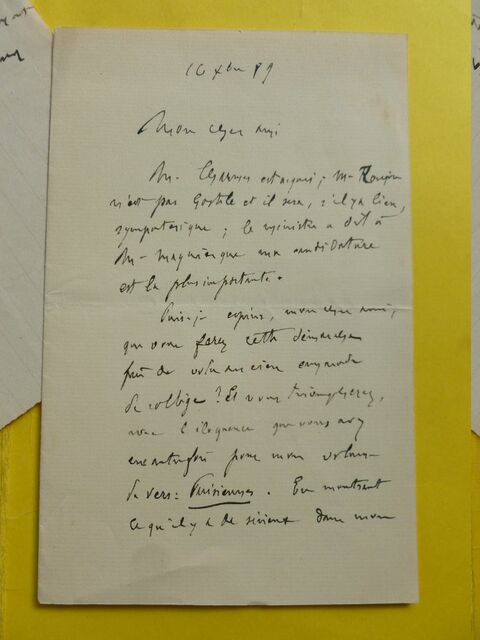 16 Xbre 89
Mon cher ami
M. est acquis ; M. Roujon
n'est pas hostile et il sera, s'il y a lieu,
sympathique ; le ministre a dit à
M. que ma candidature
est la plus importante.
Puis-je espérer, mon cher ami,
que vous ferez cette démarche
près de votre ancien camarade
de collège ? Et vous triompherez,
avec l'éloquence que vous avez
eue autrefois pour mon volume
de vers : Parisiennes. En montrant
ce qu'il y a de sérieux dans mon